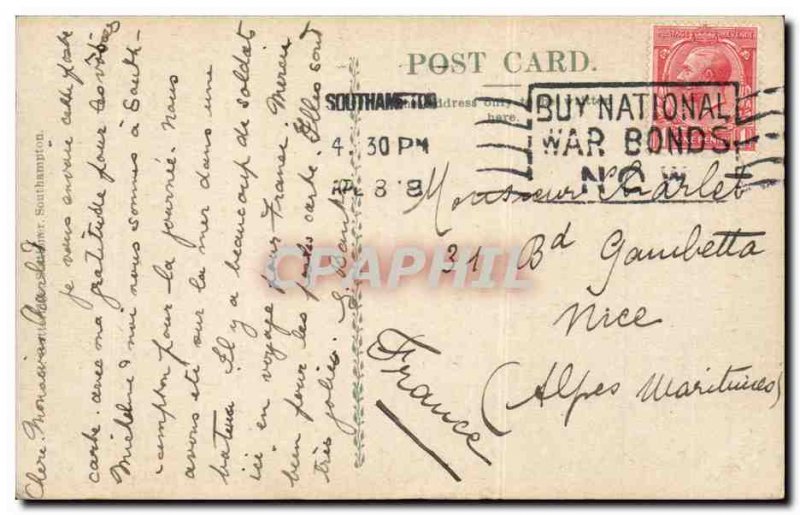 POST CARD.
SOUTHAMPTON
4. 30 PM
APR 8 18
BUY NATIONAL
WAR BONDS
NOW
Address only
here.
Southampton.
Monsieur Charlet
31 Bd Gambetta
Nice
(Alpes Maritimes)
France
Chere Monsieur Charlet
je vous envoie cette
carte avec ma gratitude pour les
Micheline & moi nous sommes à South-
ampton pour la journée. Nous
avons été sur la mer dans une
bateau. Il y a beaucoup de soldat
ici en voyage pour France. Merci
bien pour les postes carte. Elles sont
très jolies.
CPAPHIL